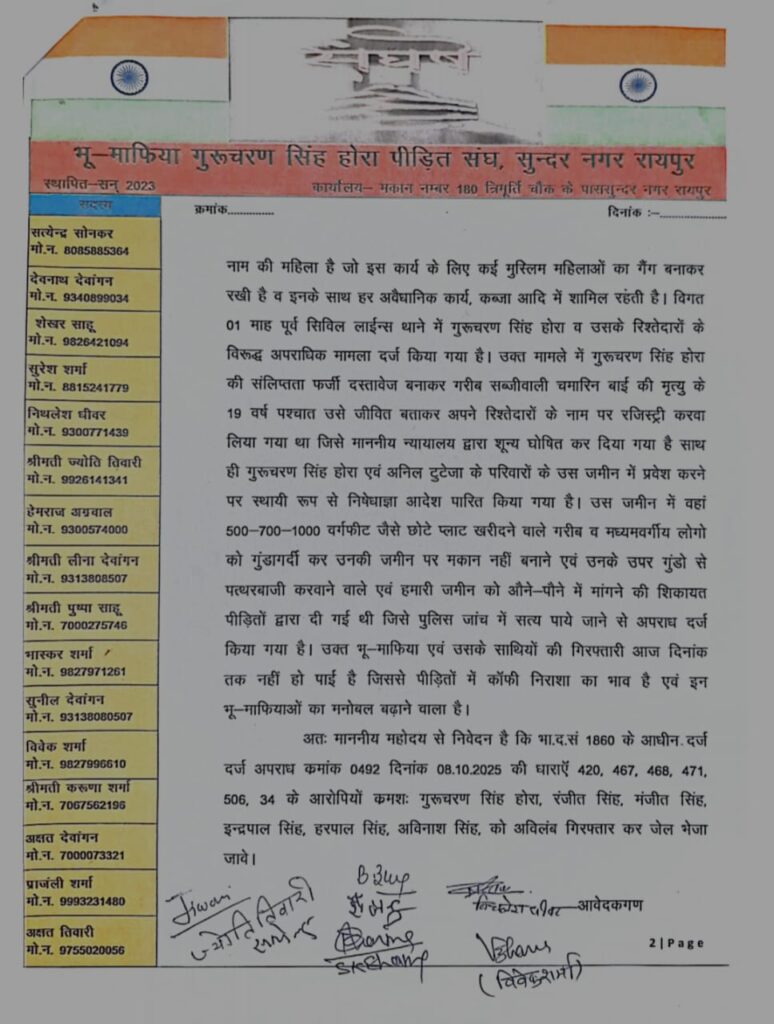 संघर्ष
भू–माफिया गुरूचरण सिंह होरा पीड़ित संघ, सुन्दर नगर रायपुर
स्थापित–सन् 2023
कार्यालय– मकान नम्बर 180 त्रिमूर्ति चौक के पाससुन्दर नगर रायपुर
सदस्य
क्रमांक..............
दिनांक :–.....................
सत्येन्द्र सोनकर
मो.न. 8085885364
देवनाथ देवांगन
मो.न. 9340899034
शेखर साहू
मो.न. 9826421094
सुरेश शर्मा
मो.न. 8815241779
निथलेश धीवर
मो.न. 9300771439
श्रीमती ज्योति तिवारी
मो.न. 9926141341
हेमराज अग्रवाल
मो.न. 9300574000
श्रीमती लीना देवांगन
मो.न. 9313808507
श्रीमती पुष्पा साहू
मो.न. 7000275746
भास्कर शर्मा
मो.न. 9827971261
सुनील देवांगन
मो.न. 93138080507
विवेक शर्मा
मो.न. 9827996610
श्रीमती करूणा शर्मा
मो.न. 7067562196
अक्षत देवांगन
मो.न. 7000073321
प्राजंली शर्मा
मो.न. 9993231480
अक्षत तिवारी
मो.न. 9755020056
नाम की महिला है जो इस कार्य के लिए कई मुस्लिम महिलाओं का गैंग बनाकर
रखी है व इनके साथ हर अवैधानिक कार्य, कब्जा आदि में शामिल रहती है। विगत
01 माह पूर्व सिविल लाईन्स थाने में गुरूचरण सिंह होरा व उसके रिश्तेदारों के
विरूद्ध अपराधिक मामला दर्ज किया गया है। उक्त मामले में गुरूचरण सिंह होरा
की संलिप्तता फर्जी दस्तावेज बनाकर गरीब सब्जीवाली चमारिन बाई की मृत्यु के
19 वर्ष पश्चात उसे जीवित बताकर अपने रिश्तेदारों के नाम पर रजिस्ट्री करवा
लिया गया था जिसे माननीय न्यायालय द्वारा शून्य घोषित कर दिया गया है साथ
ही गुरूचरण सिंह होरा एवं अनिल टुटेजा के परिवारों के उस जमीन में प्रवेश करने
पर स्थायी रूप से निषेधाज्ञा आदेश पारित किया गया है। उस जमीन में वहां
500–700–1000 वर्गफीट जैसे छोटे प्लाट खरीदने वाले गरीब व मध्यमवर्गीय लोगो
को गुंडागर्दी कर उनकी जमीन पर मकान नहीं बनाने एवं उनके उपर गुंडो से
पत्थरबाजी करवाने वाले एवं हमारी जमीन को औने–पौने में मांगने की शिकायत
पीड़ितों द्वारा दी गई थी जिसे पुलिस जांच में सत्य पाये जाने से अपराध दर्ज
किया गया है। उक्त भू–माफिया एवं उसके साथियों की गिरफ्तारी आज दिनांक
तक नहीं हो पाई है जिससे पीड़ितों में कॉफी निराशा का भाव है एवं इन
भू–माफियाओं का मनोबल बढ़ाने वाला है।
अतः माननीय महोदय से निवेदन है कि भा.द.सं 1860 के आधीन दर्ज
दर्ज अपराध क्रमांक 0492 दिनांक 08.10.2025 की धाराऍ 420, 467, 468, 471,
506, 34 के आरोपियों क्रमशः गुरूचरण सिंह होरा, रंजीत सिंह, मंजीत सिंह,
इन्द्रपाल सिंह, हरपाल सिंह, अविनाश सिंह, को अविलंब गिरफ्तार कर जेल भेजा
जावे।
आवेदकगण
ज्योति तिवारी
(विवेक शर्मा)
2 | P a g e